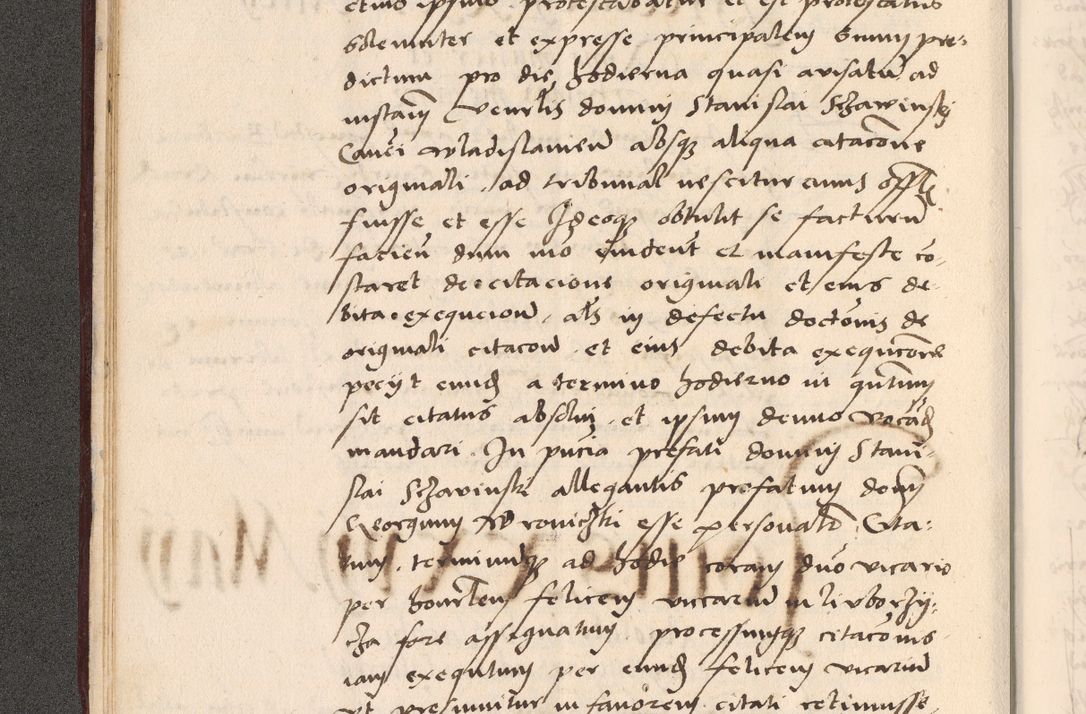 etmo ipsius protestabatur et est protestatus
solemniter et expresse principalem suum pre-
dictum pro die hodierna quasi avisatum ad
instam Venrlis domini Stanislai Sczawinskj
Canci Wladislavien absqz aliqua citacone
originali ad tribunal nescitur cuius offlis
fuisse et esse Ideoqz obtulit se facturu
facien dum mo evident et manifeste co-
staret de citacione originali et eius de-
bita exequcion, als in defectu doctonis de
originali citacon et eius debita exequcone
pecyt eund a termino hodierno in quantum
sit citatus absolvi et ipsum denuo vocand
mandari. In pncia prefati domini Stani-
slai Sczavinski allegantis prefatum domin
Georgium Wroniczki esse personalr Cita-
tum, terminumqz ad hodie coram dno vicario
per honorlem felicem viccarium in Uvborzy-
cza fore assignatum, processumqz citaconis
iam exequtum per eund felicem vicariu
ut presumitur in favorem citati retinuisse.